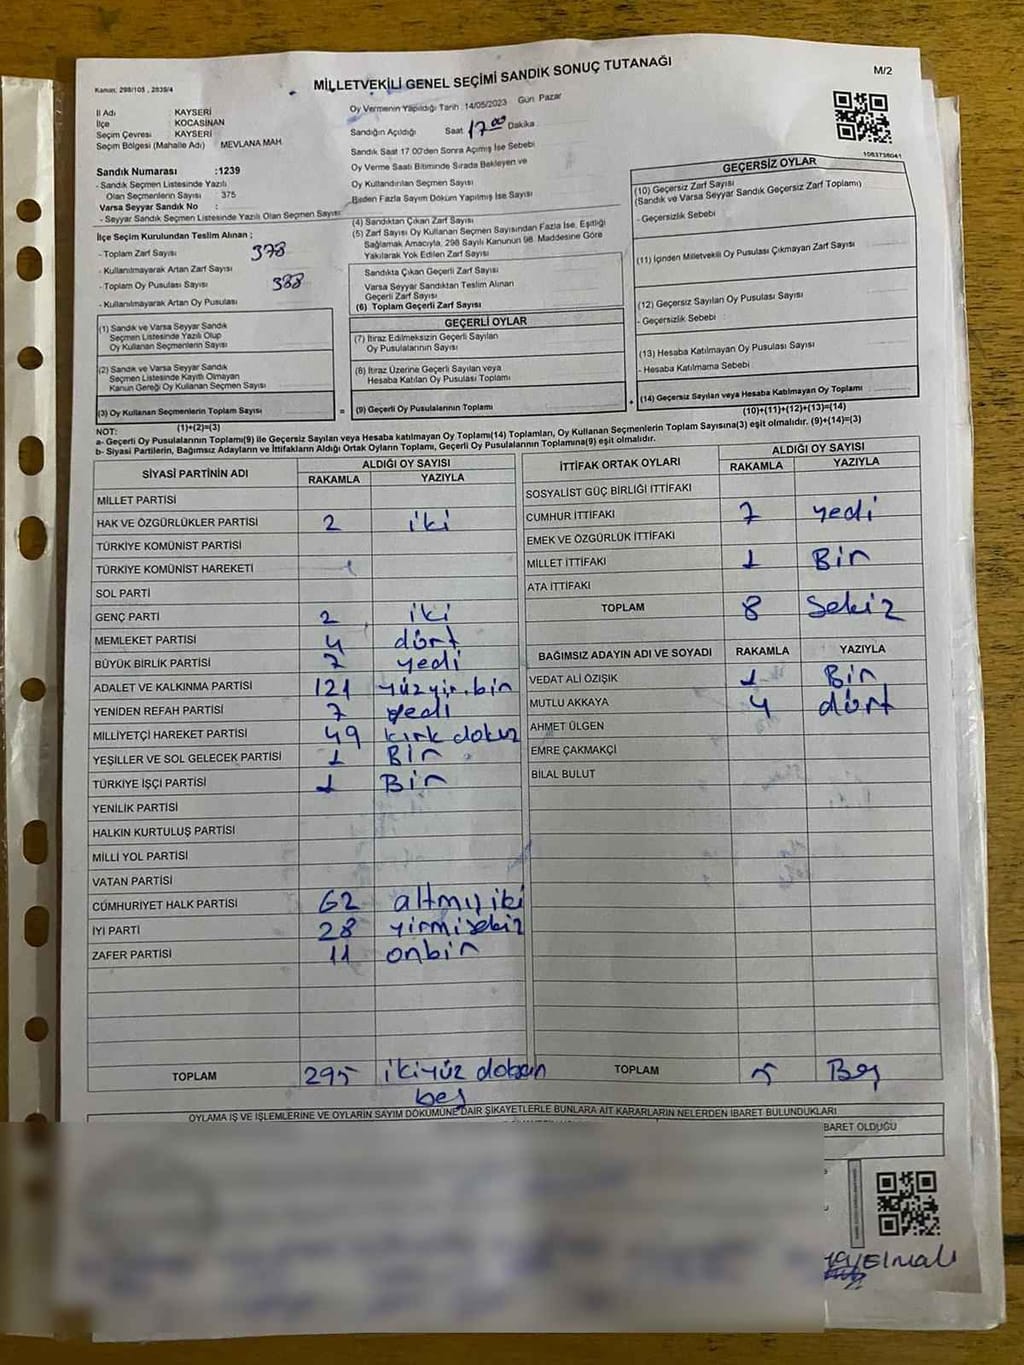 MİLLETVEKİLİ GENEL SEÇİMİ SANDIK SONUÇ TUTANAĞI
M/2
Kanun: 298/105, 2839/4
İl Adı KAYSERİ
İlçe KOCASİNAN
Seçim Çevresi KAYSERİ
Seçim Bölgesi (Mahalle Adı) MEVLANA MAH.
Sandık Numarası :1239
- Sandık Seçmen Listesinde Yazılı
Olan Seçmenlerin Sayısı 375
Varsa Seyyar Sandık No :
- Seyyar Sandık Seçmen Listesinde Yazılı Olan Seçmen Sayısı
Oy Vermenin Yapıldığı Tarih 14/05/2023 Gün Pazar
Sandığın Açıldığı Saat 17 00 Dakika
Sandık Saat 17 00'den Sonra Açılmış İse Sebebi
Oy Verme Saati Bitiminde Sırada Bekleyen ve
Oy Kullandırılan Seçmen Sayısı
Birden Fazla Sayım Döküm Yapılmış İse Sayısı
1083738041
İlçe Seçim Kurulundan Teslim Alınan ;
- Toplam Zarf Sayısı 378
- Kullanılmayarak Artan Zarf Sayısı
- Toplam Oy Pusulası Sayısı 388
- Kullanılmayarak Artan Oy Pusulası
(1) Sandık ve Varsa Seyyar Sandık
Seçmen Listesinde Yazılı Olup
Oy Kullanan Seçmenlerin Sayısı
(2) Sandık ve Varsa Seyyar Sandık
Seçmen Listesinde Kayıtlı Olmayan
Kanun Gereği Oy Kullanan Seçmen Sayısı
(3) Oy Kullanan Seçmenlerin Toplam Sayısı
(1)+(2)=(3)
(4) Sandıktan Çıkan Zarf Sayısı
(5) Zarf Sayısı Oy Kullanan Seçmen Sayısından Fazla İse, Eşitliği
Sağlamak Amacıyla, 298 Sayılı Kanunun 98. Maddesine Göre
Yakılarak Yok Edilen Zarf Sayısı
Sandıkta Çıkan Geçerli Zarf Sayısı
Varsa Seyyar Sandıktan Teslim Alınan
Geçerli Zarf Sayısı
(6) Toplam Geçerli Zarf Sayısı
GEÇERLİ OYLAR
(7) İtiraz Edilmeksizin Geçerli Sayılan
Oy Pusulalarının Sayısı
(8) İtiraz Üzerine Geçerli Sayılan veya
Hesaba Katılan Oy Pusulası Toplamı
= (9) Geçerli Oy Pusulalarının Toplamı +
GEÇERSİZ OYLAR
(10) Geçersiz Zarf Sayısı
(Sandık ve Varsa Seyyar Sandık Geçersiz Zarf Toplamı)
- Geçersizlik Sebebi
(11) İçinden Milletvekili Oy Pusulası Çıkmayan Zarf Sayısı
(12) Geçersiz Sayılan Oy Pusulası Sayısı
- Geçersizlik Sebebi
(13) Hesaba Katılmayan Oy Pusulası Sayısı
- Hesaba Katılmama Sebebi
(14) Geçersiz Sayılan veya Hesaba Katılmayan Oy Toplamı
(10)+(11)+(12)+(13)=(14)
NOT:
a- Geçerli Oy Pusulalarının Toplamı(9) ile Geçersiz Sayılan veya Hesaba katılmayan Oy Toplamı(14) Toplamları, Oy Kullanan Seçmenlerin Toplam Sayısına(3) eşit olmalıdır. (9)+(14)=(3)
b- Siyasi Partilerin, Bağımsız Adayların ve İttifakların Aldığı Ortak Oyların Toplamı, Geçerli Oy Pusulalarının Toplamına(9) eşit olmalıdır.
SİYASİ PARTİNİN ADI ALDIĞI OY SAYISI
RAKAMLA YAZIYLA
MİLLET PARTİSİ
HAK VE ÖZGÜRLÜKLER PARTİSİ 2 iki
TÜRKİYE KOMÜNİST PARTİSİ
TÜRKİYE KOMÜNİST HAREKETİ
SOL PARTİ
GENÇ PARTİ 2 iki
MEMLEKET PARTİSİ 4 dört
BÜYÜK BİRLİK PARTİSİ 7 yedi
ADALET VE KALKINMA PARTİSİ 121 yüzyir.bin
YENİDEN REFAH PARTİSİ 7 yedi
MİLLİYETÇİ HAREKET PARTİSİ 49 kırk dokuz
YEŞİLLER VE SOL GELECEK PARTİSİ 1 Bir
TÜRKİYE İŞÇİ PARTİSİ 1 Bir
YENİLİK PARTİSİ
HALKIN KURTULUŞ PARTİSİ
MİLLİ YOL PARTİSİ
VATAN PARTİSİ
CUMHURİYET HALK PARTİSİ 62 altmış iki
İYİ PARTİ 28 yirmisekiz
ZAFER PARTİSİ 11 onbir
TOPLAM 295 ikiyüz doksan
beş
İTTİFAK ORTAK OYLARI ALDIĞI OY SAYISI
RAKAMLA YAZIYLA
SOSYALİST GÜÇ BİRLİĞİ İTTİFAKI
CUMHUR İTTİFAKI 7 yedi
EMEK VE ÖZGÜRLÜK İTTİFAKI
MİLLET İTTİFAKI 1 Bir
ATA İTTİFAKI
TOPLAM 8 Sekiz
BAĞIMSIZ ADAYIN ADI VE SOYADI RAKAMLA YAZIYLA
VEDAT ALİ ÖZIŞIK 1 Bir
MUTLU AKKAYA 4 dört
AHMET ÜLGEN
EMRE ÇAKMAKÇİ
BİLAL BULUT
TOPLAM 5 Beş
OYLAMA İŞ VE İŞLEMLERİNE VE OYLARIN SAYIM DÖKÜMÜNE DAİR ŞİKAYETLERLE BUNLARA AİT KARARLARIN NELERDEN İBARET BULUNDUKLARI
BARET OLDUĞU